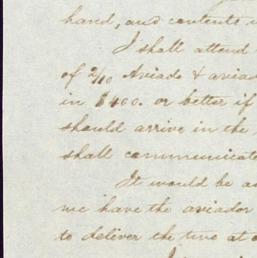 hand, and contents
I shall attend
of 2/10 Aviado & aviad
in $400. or better if
should arrive in the
shall communicate
It would be a
we have the aviador
to deliver the two at